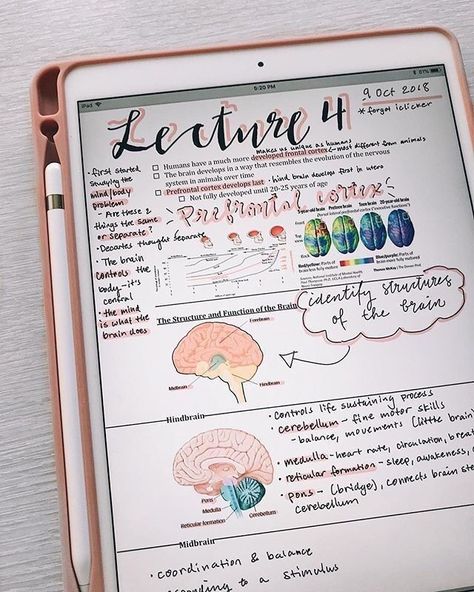 iPad
5:20 PM
81%
Lecture 4
9 Oct 2018
* forgot iclicker
makes us unique as humans
Humans have a much more developed frontal cortex ← most different from animals
The brain develops in a way that resembles the evolution of the nervous
system in animals over time
hind brain develops first in utero
Prefrontal cortex develops last
Not fully developed until 20-25 years of age
Prefrontal cortex
• first started
studying the
mind/body
problem
- Are these 2
things the same
or separate?
• Decartes thought separate
• The brain
controls the
body - it's
central
• the mind
is what the
brain does
Dorsal lateral prefrontal cortex
5-year-old brain
Preteen brain
Teen brain
20-year-old brain
Red/yellow: Parts of
brain less fully mature
Blue/purple: Parts of
identify structures
of the brain
The Structure and Function of the Brain
Cerebrum
Midbrain
Hindbrain
Hindbrain
• controls life sustaining process
• cerebellum - fine motor skills
- balance, movements (little brain
• medulla - heart rate, circulation, breat
• reticular formation - sleep, awareness,
• pons - (bridge), connects brain ste
cerebellum
Pons
Medulla
Reticular formation
Cerebellum
Midbrain
• coordination & balance
according to a stimulus